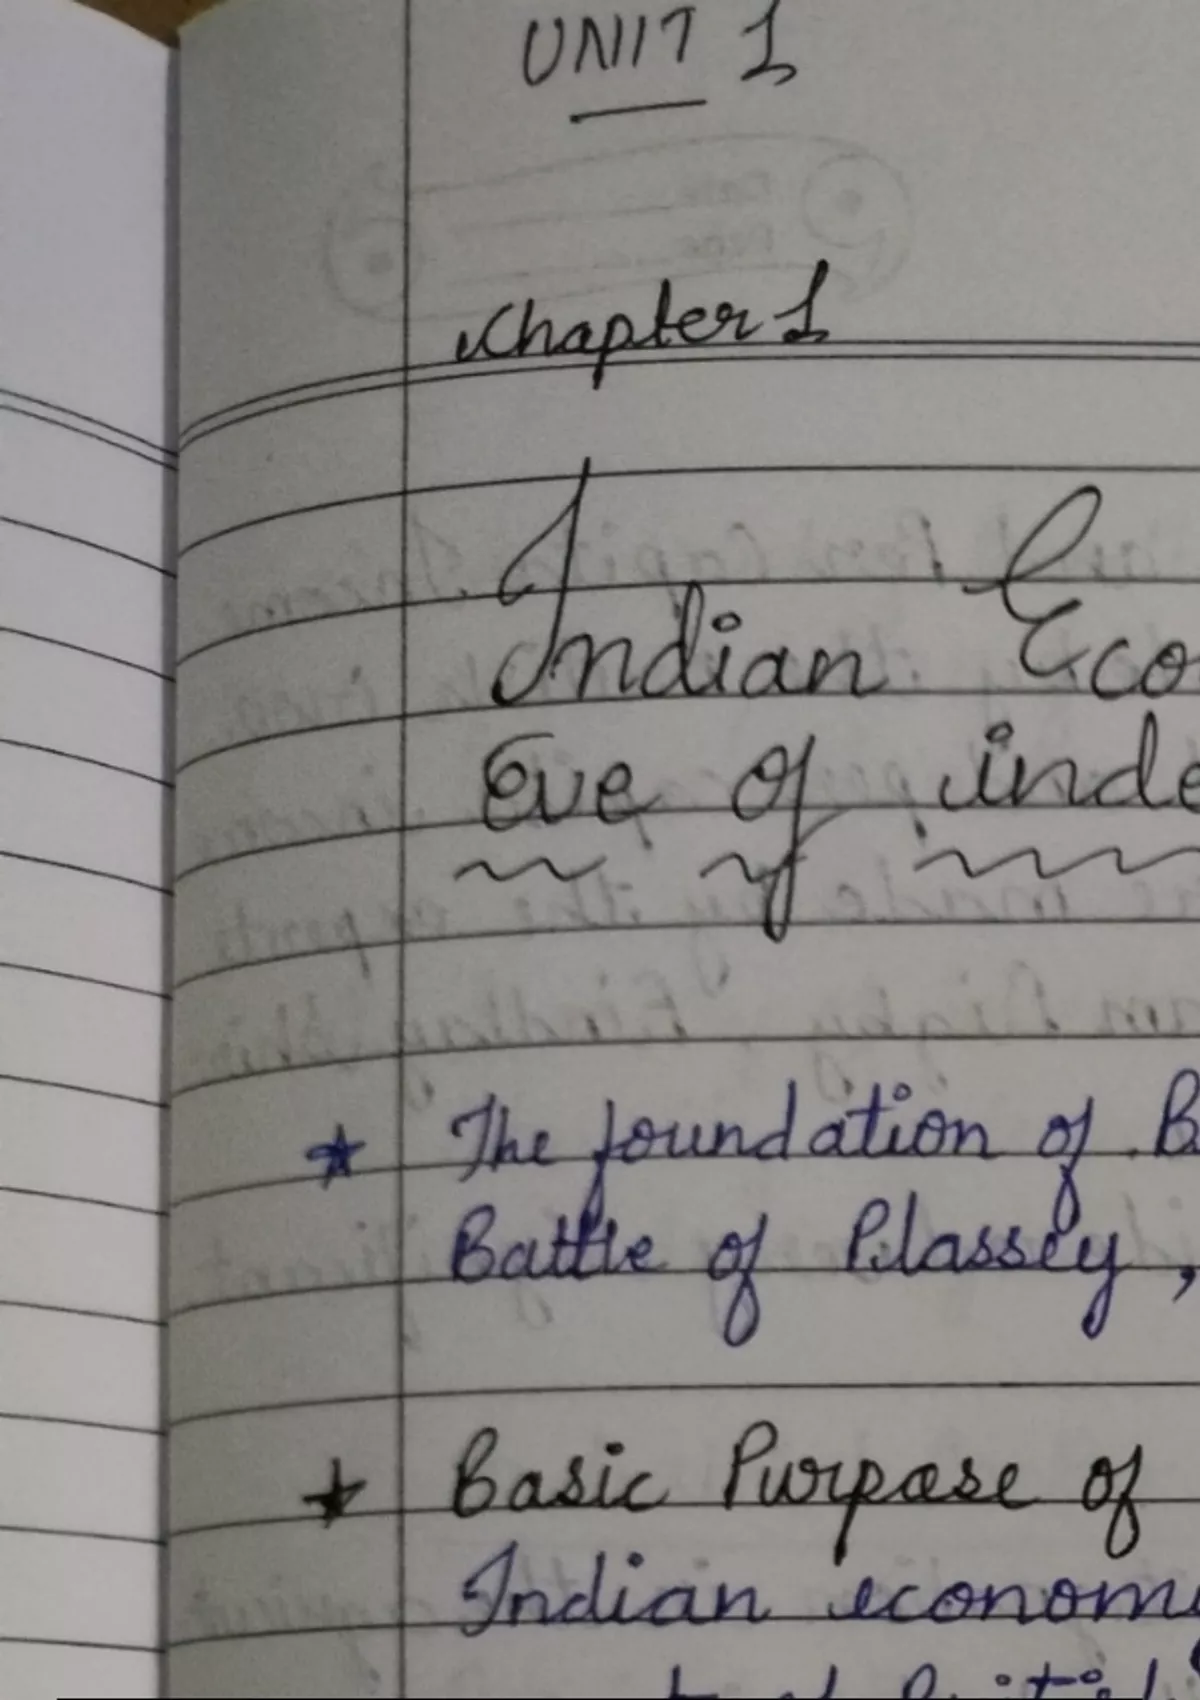 UNIT 1
Chapter 1
Indian Eco
Eve of inde
★ The foundation of B
Battle of Plassey,
★ Basic Purpose of
Indian econom